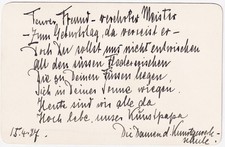 Teurer Freund – verehrter Meister
– Zum Geburtstag, da verreist er –
Doch Du sollst uns nicht entwischen
All den süssen
Die zu Deinen Füssen liegen,
Sich in Deiner Sonne wiegen.
Heute sind wir alle da
Hoch lebe unser Kunstpapa
15.4.27.
Die Damen d. Kunstgewerbe-
schule.